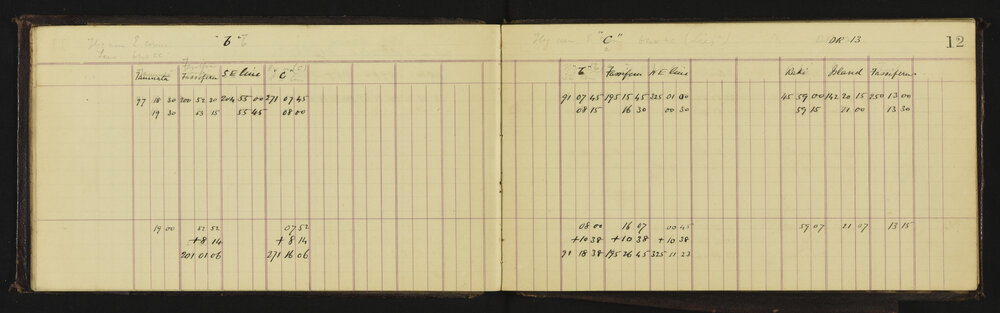 "B"
Fassifern
Taumata Fassifern S E line "C"
97 18 30 200 52 30 204 55 00 271 07 45
19 30 53 15 55 45 08 00
19 00 52 52 07 52
+8 14 +8 14
201 01 06 271 16 06
"C" DR 13 12
Fassifern N E line Reki Island Fassifern
91 07 45 195 15 45 325 01 00 45 59 00 142 20 15 250 13 00
08 15 16 30 00 30 59 15 21 00 13 30
08 00 16 07 00 45 59 07 21 07 13 15
+10 38 +10 38 +10 38
91 18 38 195 26 45 325 11 23